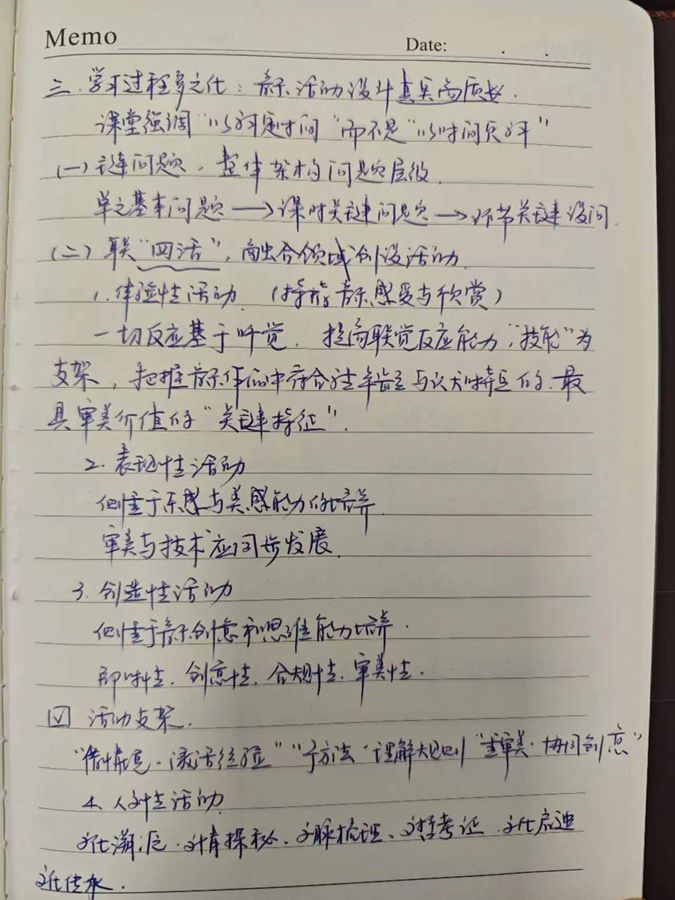 Memo Date: . .
三. 学习过程多元化：音乐活动设计真实高质效.
课堂强调“以学定时间”而不是“以时间定学”
(一) 关键问题，整体架构问题层级.
单元基本问题 → 课时关键问题 → 环节关键设问.
(二) 联“四活”，融合领域创设活动.
1. 体验性活动 (指音乐感受与欣赏)
一切反应基于听觉，提高联觉反应能力，“技能”为
支架，把握音乐作品中符合法年龄与认知特点的、最
具审美价值的“关键特征”.
2. 表现性活动
侧重于乐感与美感能力的培养
审美与技术应同步发展.
3. 创造性活动
侧重于音乐创意和思维能力培养.
即时性、创意性、合规性、审美性.
☑ 活动支架.
“借情境·激活经验”“予方法·理解规则”“重审美·协同创意”
4. 人文性活动
文化溯源、文情探秘、文脉梳理、文哲考证、文化启迪
文化传承.